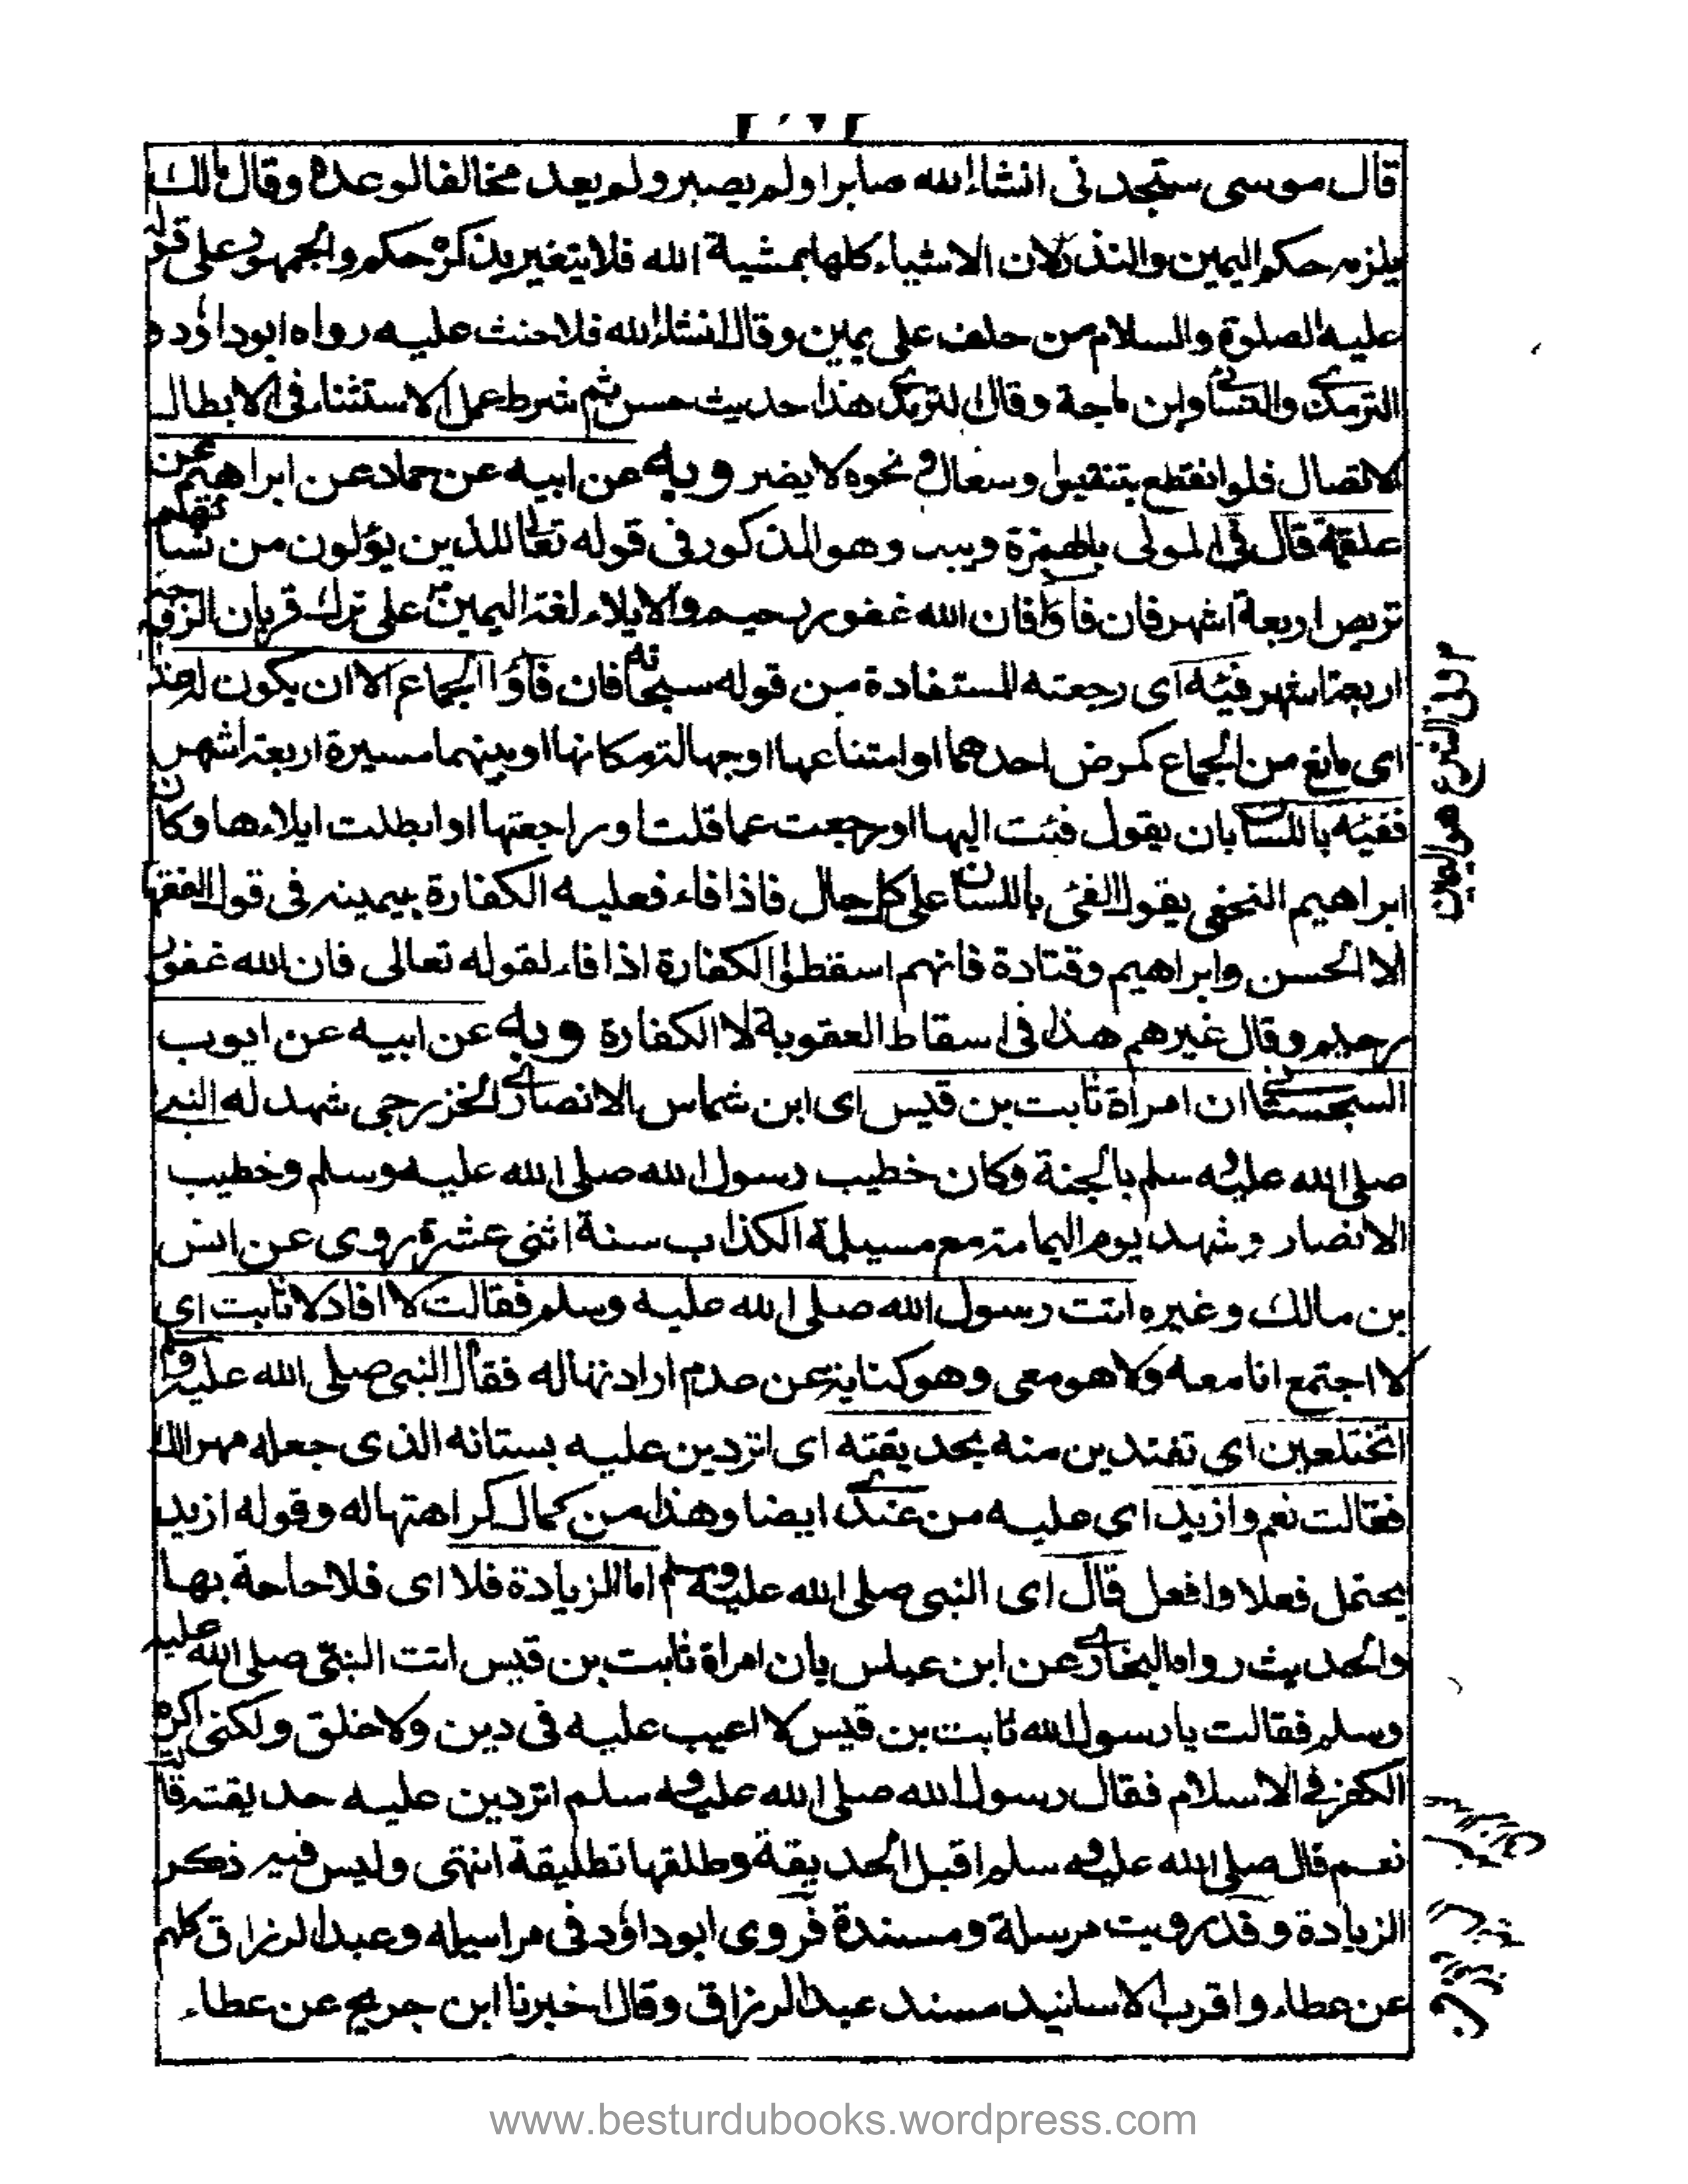 قال موسى ستجدنى انشاء الله صابرا ولم يصبر ولم يعد مخالفا لوعده وقال مالك
يلزمه حكم اليمين والنذر لان الاشياء كلها بمشية الله فلا يتغير بذكره حكم والجمهور على قوله
عليه الصلوة والسلام من حلف على يمين وقال انشاء الله فلا حنث عليه رواه ابوداؤد و
الترمذى والنسائى وابن ماجة وقال الترمذى هذا حديث حسن ثم شرط عمل الاستثناء فى الابطال
الاتصال فلو انقطع بتنفس او سعال و نحوه لا يضر وبه عن ابيه عن حماد عن ابراهيم عن
علقمة قال فى المولى بالهمزة ويبدل وهو المذكور فى قوله تعالى للذين يؤلون من نسائهم
تربص اربعة اشهر فان فاؤا فان الله غفور رحيم والايلاء لغة اليمين على ترك قربان الزوجة
اربعة اشهر فيئه اى رجعته المستفادة من قوله سبحانه فان فاؤا الجماع الا ان يكون له عذر
اى مانع من الجماع كمرض احدهما او امتناعها او جهالة مكانها او بينهما مسيرة اربعة اشهر
ففيئه باللسان بان يقول فئت اليها او رجعت عما قلت او راجعتها او ابطلت ايلاءها وكان
ابراهيم النخعى يقول الفئ باللسان على كل حال فاذا فاء فعليه الكفارة بيمينه فى قول الفقهاء
الا الحسن وابراهيم وقتادة فانهم اسقطوا الكفارة اذا فاء لقوله تعالى فان الله غفور
رحيم وقال غيرهم هذا فى اسقاط العقوبة لا الكفارة وبه عن ابيه عن ايوب
السجستانى ان امرأة ثابت بن قيس اى ابن شماس الانصارى الخزرجى شهد له النبى
صلى الله عليه وسلم بالجنة وكان خطيب رسول الله صلى الله عليه وسلم وخطيب
الانصار وشهد يوم اليمامة مع مسيلمة الكذاب سنة اثنى عشرة روى عن انس
بن مالك وغيره اتت رسول الله صلى الله عليه وسلم فقالت لا انا ولا ثابت اى
لا اجتمع انا معه ولا هو معى وهو كناية عن عدم ارادتها له فقال النبى صلى الله عليه وسلم
اتختلعين اى تفتدين منه بحديقته اى اتردين عليه بستانه الذى جعله مهرا لك
فقالت نعم وازيد اى عليه من عندى ايضا وهذا من كمال كراهتها له وقوله ازيد
يحتمل فعلا وافعل قال اى النبى صلى الله عليه وسلم اما الزيادة فلا اى فلا حاجة بها
والحديث رواه البخارى عن ابن عباس بان امراة ثابت بن قيس اتت النبى صلى الله عليه
وسلم فقالت يا رسول الله ثابت بن قيس لا اعيب عليه فى دين ولا خلق ولكنى اكره
الكفر فى الاسلام فقال رسول الله صلى الله عليه وسلم اتردين عليه حديقته قالت
نعم قال صلى الله عليه وسلم اقبل الحديقة وطلقها تطليقة انتهى وليس فيه ذكر
الزيادة وقد رويت مرسلة ومسندة فروى ابوداؤد فى مراسيله وعبد الرزاق كلهم
عن عطاء واقرب الاسانيد مسند عبد الرزاق وقال اخبرنا ابن جريج عن عطاء
www.besturdubooks.wordpress.com